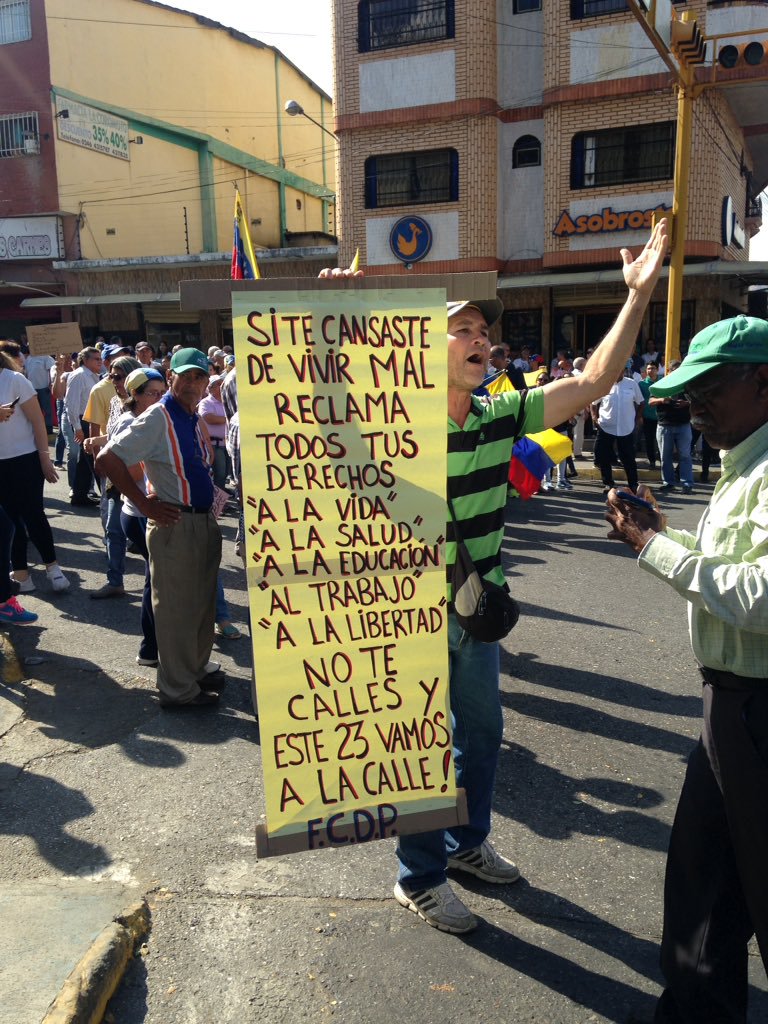 35% 40%
Asobros
SI TE CANSASTE
DE VIVIR MAL
RECLAMA
TODOS TUS
DERECHOS
"A LA VIDA"
"A LA SALUD"
"A LA EDUCACIÓN"
"AL TRABAJO"
"A LA LIBERTAD"
NO TE
CALLES Y
ESTE 23 VAMOS
A LA CALLE!
F.C.D.P.